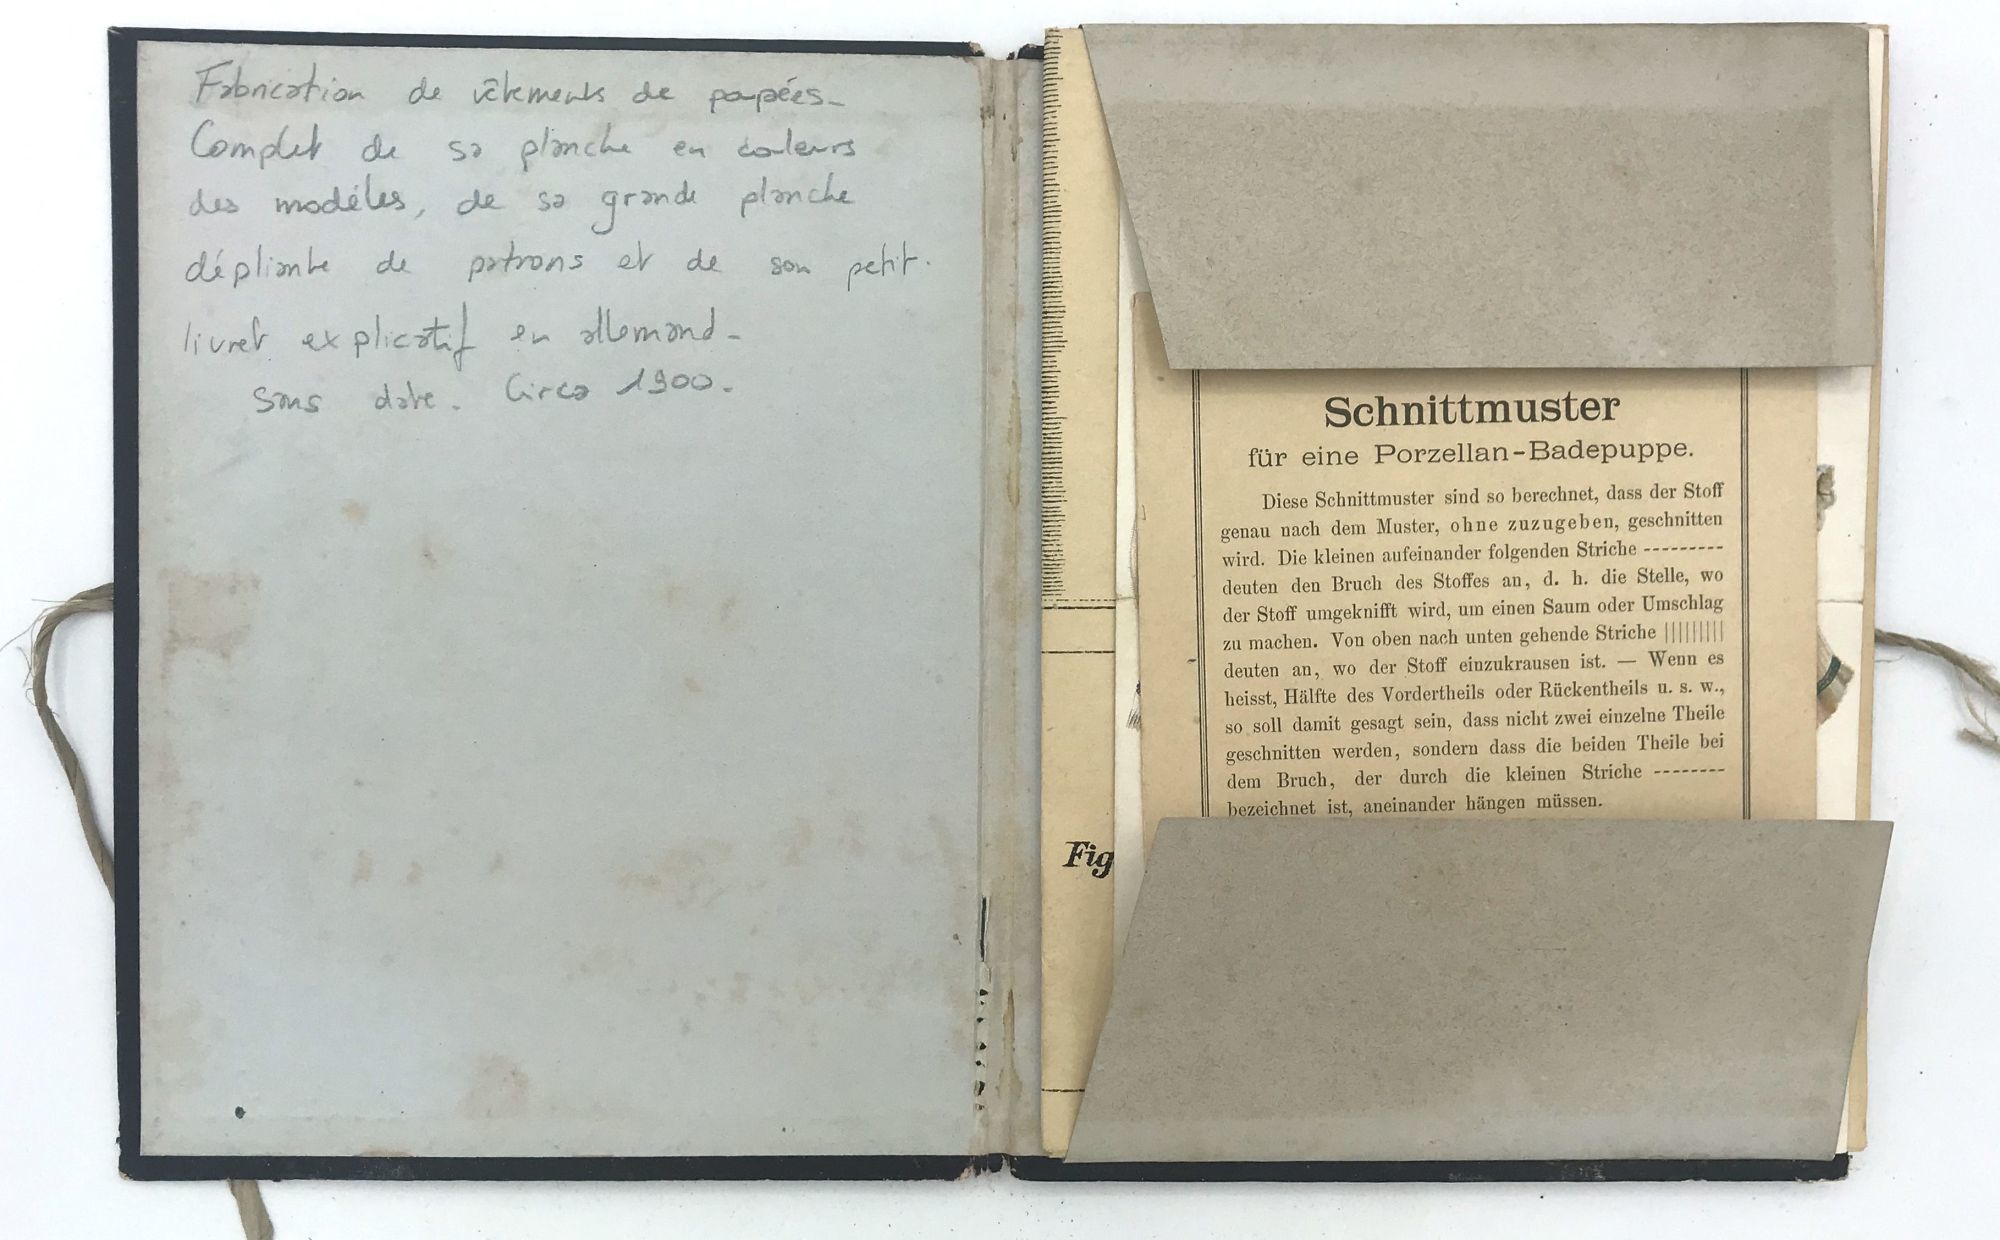 Fabrication de vêtements de poupées-
Complet de sa planche en couleurs
des modèles, de sa grande planche
dépliante de patrons et de son petit.
livret explicatif en allemand-
sans date. Circa 1900.
Schnittmuster
für eine Porzellan-Badepuppe.
Diese Schnittmuster sind so berechnet, dass der Stoff
genau nach dem Muster, ohne zuzugeben, geschnitten
wird. Die kleinen aufeinander folgenden Striche ---------
deuten den Bruch des Stoffes an, d. h. die Stelle, wo
der Stoff umgeknifft wird, um einen Saum oder Umschlag
zu machen. Von oben nach unten gehende Striche |||||||||
deuten an, wo der Stoff einzukrausen ist. — Wenn es
heisst, Hälfte des Vordertheils oder Rückentheils u. s. w.,
so soll damit gesagt sein, dass nicht zwei einzelne Theile
geschnitten werden, sondern dass die beiden Theile bei
dem Bruch, der durch die kleinen Striche --------
bezeichnet ist, aneinander hängen müssen.
Fig